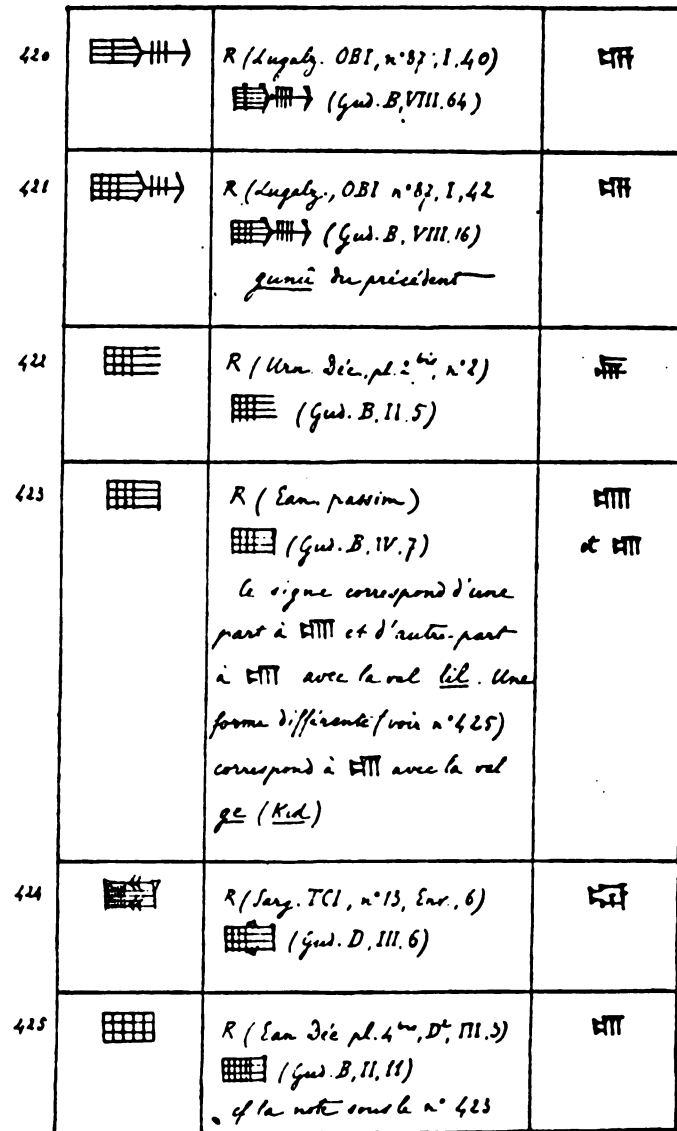 420
R (Lugalz. OBI, n°87, I, 40)
(Gud. B, VIII. 64)
421
R (Lugalz., OBI n°87, I, 42
(Gud. B, VIII. 16)
gunû du précédent
422
R (Urn. Déc. pl. 2 bis, n°2)
(Gud. B, II. 5)
423
R (Ean. passim)
(Gud. B, IV. 7)
et
Ce signe correspond d'une
part à et d'autre part
à avec la val lil. Une
forme différente (voir n°425)
correspond à avec la val
ge (Kid)
424
R (Sarg. TCI, n°13, Env., 6)
(Gud. D, III. 6)
425
R (Ean Déc pl. 4, III. 3)
(Gud. B, II, 11)
cf la note sous le n° 423